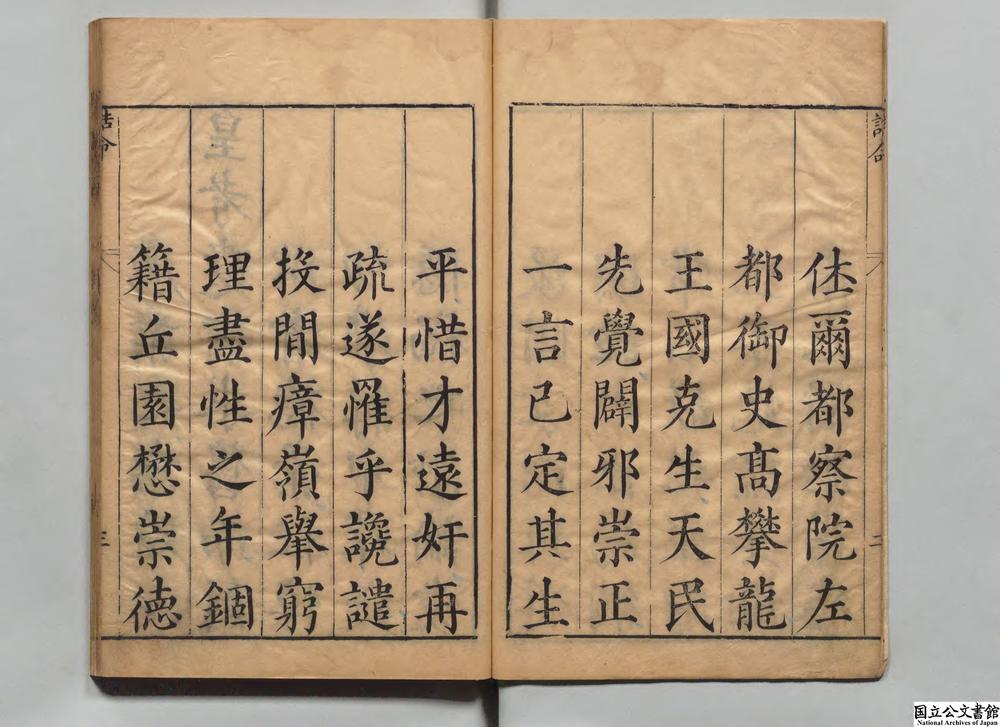 誥命
二
休爾都察院左
都御史高攀龍
王國克生天民
先覺闢邪崇正
一言已定其生
平惜才遠奸再
疏遂罹乎讒譴
投閒瘴嶺舉窮
理盡性之年錮
籍丘園懋崇德
誥命
三
国立公文書館
National Archives of Japan